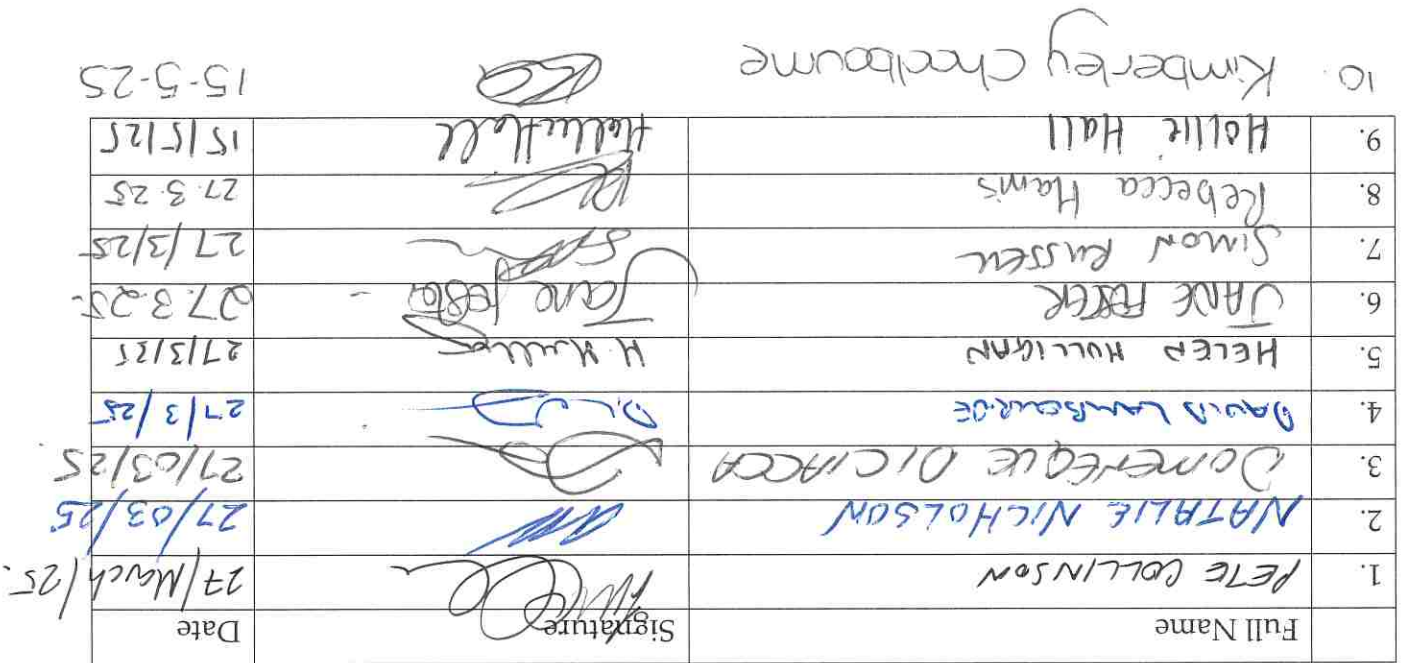 Full Name Signature Date
1. PETE COLLINSON 27/March/25.
2. NATALIE NICHOLSON 27/03/25
3. DOMENEQUE DICIACCA 27/03/25
4. DAVID LAMBOURDE 27/3/25
5. HELEN MULLIGAN H. Mulligan 27/3/25
6. JANE FOSTER Jane Foster 27.3.25
7. SIMON RUSSELL 27/3/25
8. Rebecca Harris 27.3.25
9. Hollie Hall Hollie Hall 15/5/25
10. Kimberley Chadbourne 15-5-25